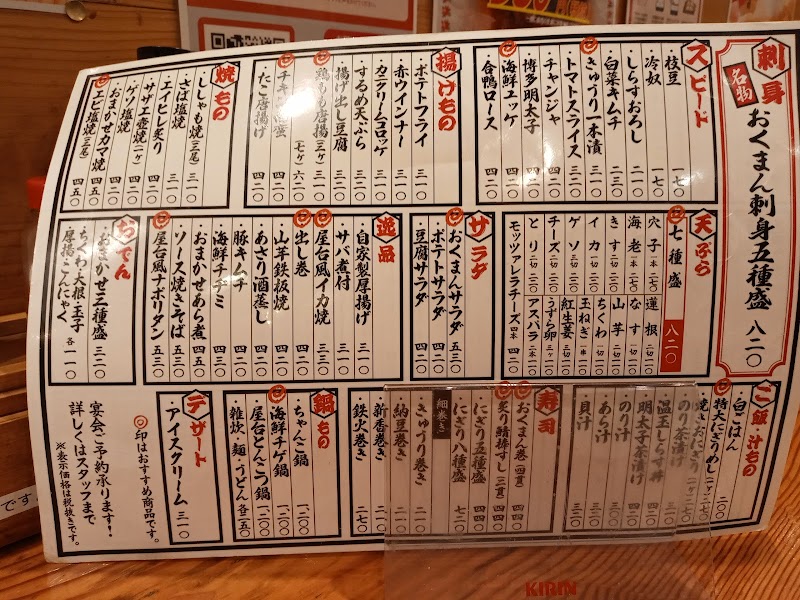 刺身
名物
おくまん刺身五種盛 八二〇
スピード
・枝豆 一七〇
・冷奴 一七〇
・しらすおろし 二一〇
・白菜キムチ 二三〇
きゅうり一本漬 三一〇
・トマトスライス 三一〇
・チャンジャ 四二〇
・博多明太子 四二〇
海鮮ユッケ 四二〇
・合鴨ロース 四二〇
揚げもの
・ポテトフライ 三一〇
・赤ウインナー 三一〇
・カニクリームコロッケ
・するめ天ぷら
・揚げ出し豆腐
鶏もも唐揚(三ヶ) 三一〇
(七ヶ) 六二〇
・たこ唐揚げ 四二〇
焼もの
・ししゃも焼(三尾) 三一〇
・さば塩焼 三一〇
・エイヒレ炙り
・サザエ壺焼(一ヶ)
・ゲソ塩焼 四二〇
・おまかせカマ焼
エビ塩焼(三尾) 四五〇
天ぷら
七種盛 八二〇
穴子 一本
海老 一本
きす 二切
イカ 二切
ゲソ
チーズ 二切
とり 二切
モッツァレラチーズ 四本 四二〇
蓮根 二切
なす 二切
山芋 二切
ちくわ
玉ねぎ
紅生姜
うずら卵
アスパラ
サラダ
おくまんサラダ 五三〇
ポテトサラダ
・豆腐サラダ 四二〇
逸品
・自家製厚揚げ 三一〇
・サバ煮付 三一〇
屋台風イカ焼 三三〇
出し巻
・山芋鉄板焼 四二〇
・あさり酒蒸し
・豚キムチ 四二〇
・海鮮チヂミ
・おまかせあら煮 四五〇
・ソース焼きそば 五三〇
屋台風ナポリタン 五三〇
おでん
・おまかせ三種盛 三二〇
・ちくわ・大根・玉子
・厚揚・こんにゃく 各一一〇
ご飯・汁もの
・白ごはん 二〇〇
特大にぎりめし(一ヶ)
・のり茶漬け
・温玉しらす丼
・明太子茶漬け
・のり汁
・あら汁
・貝汁
寿司
おくまん巻(四貫) 四四〇
炙り鯖棒すし(三貫) 四四〇
・にぎり五種盛
・にぎり八種盛 七二〇
細巻き
・きゅうり巻き 二一〇
・納豆巻き 二一〇
・新香巻き
・鉄火巻き 二七〇
鍋もの
・ちゃんこ鍋 一、二〇〇
海鮮チゲ鍋 一、二〇〇
・屋台とんこつ鍋 一、二〇〇
・雑炊・麺・うどん 各二五〇
デザート
・アイスクリーム 三一〇
印はおすすめ商品です。
宴会ご予約承ります!!
詳しくはスタッフまで
※表示価格は税抜きです。
です。
KIRIN